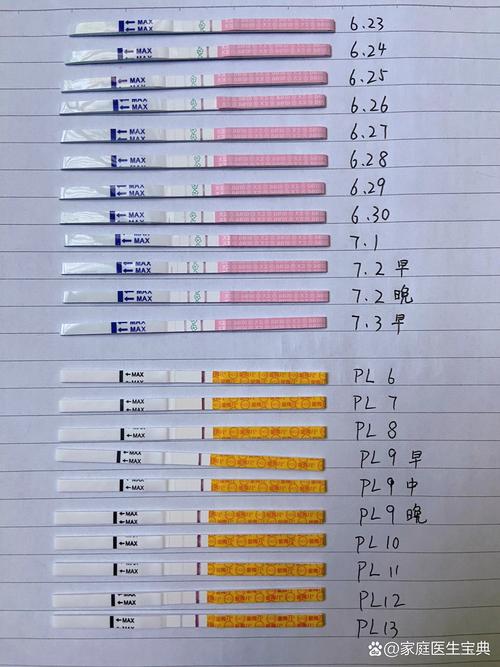 MAX 6.23
MAX 6.24
MAX 6.25
MAX 6.26
MAX 6.27
MAX 6.28
MAX 6.29
MAX 6.30
MAX 7.1
MAX 7.2 早
MAX 7.2 晚
MAX 7.3 早
MAX PL 6
MAX PL 7
MAX PL 8
MAX PL 9 早
MAX PL 9 中
MAX PL 9 晚
MAX PL 10
MAX PL 11
MAX PL 12
MAX PL 13
家庭医生宝典